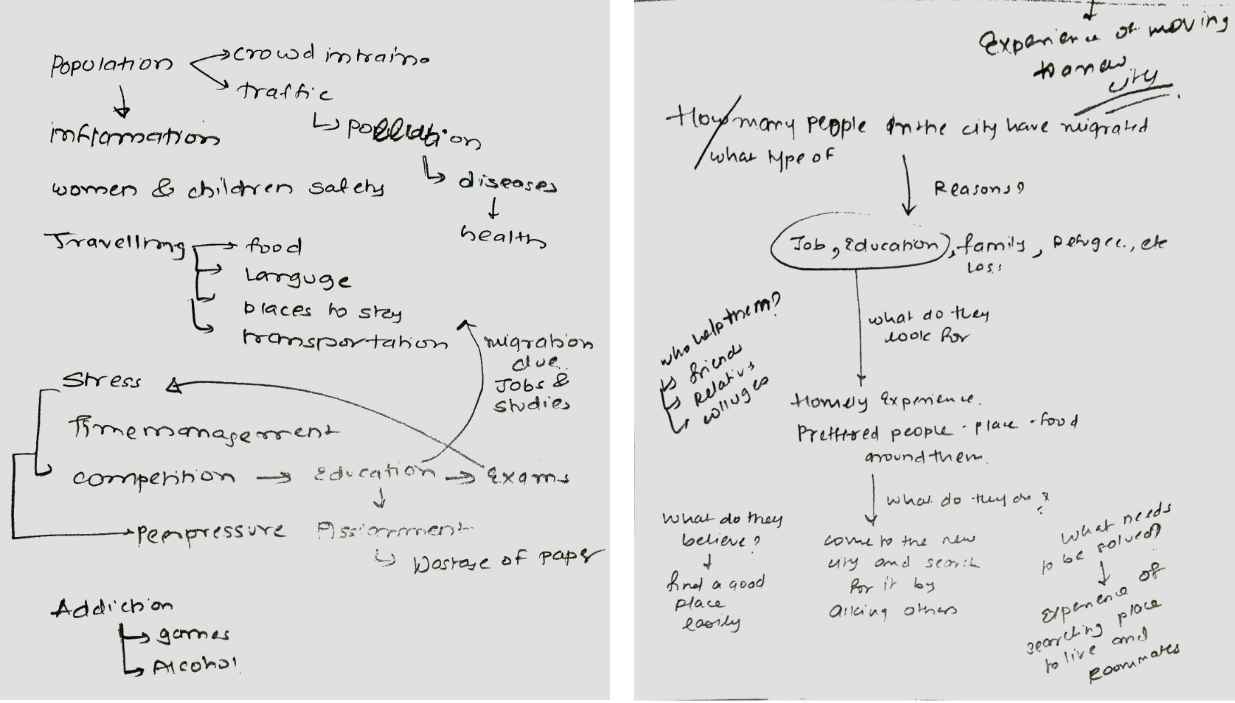 Population
crowd in trains
traffic
pollution
inflamation
diseases
women & children safety
health
Travelling
food
Languge
places to stay
transportation
migration
due
Jobs &
studies
Stress
Time management
competition
Education
Exams
Peerpressure
Assignment
Wastage of paper
Addiction
games
Alcohol
Experience of moving
to a new
city
How many people in the city have migrated
what type of
Reasons?
Job, Education, family, Refugee, etc
Loss
what do they
look for
who help them?
friends
Relatives
Homely Experience.
Preffered people · place · food
around them.
what do they do?
What do they
believe?
find a good
place
easily
come to the new
city and search
for it by
asking others
What needs
to be solved?
Experience of
searching place
to live and
Roommates